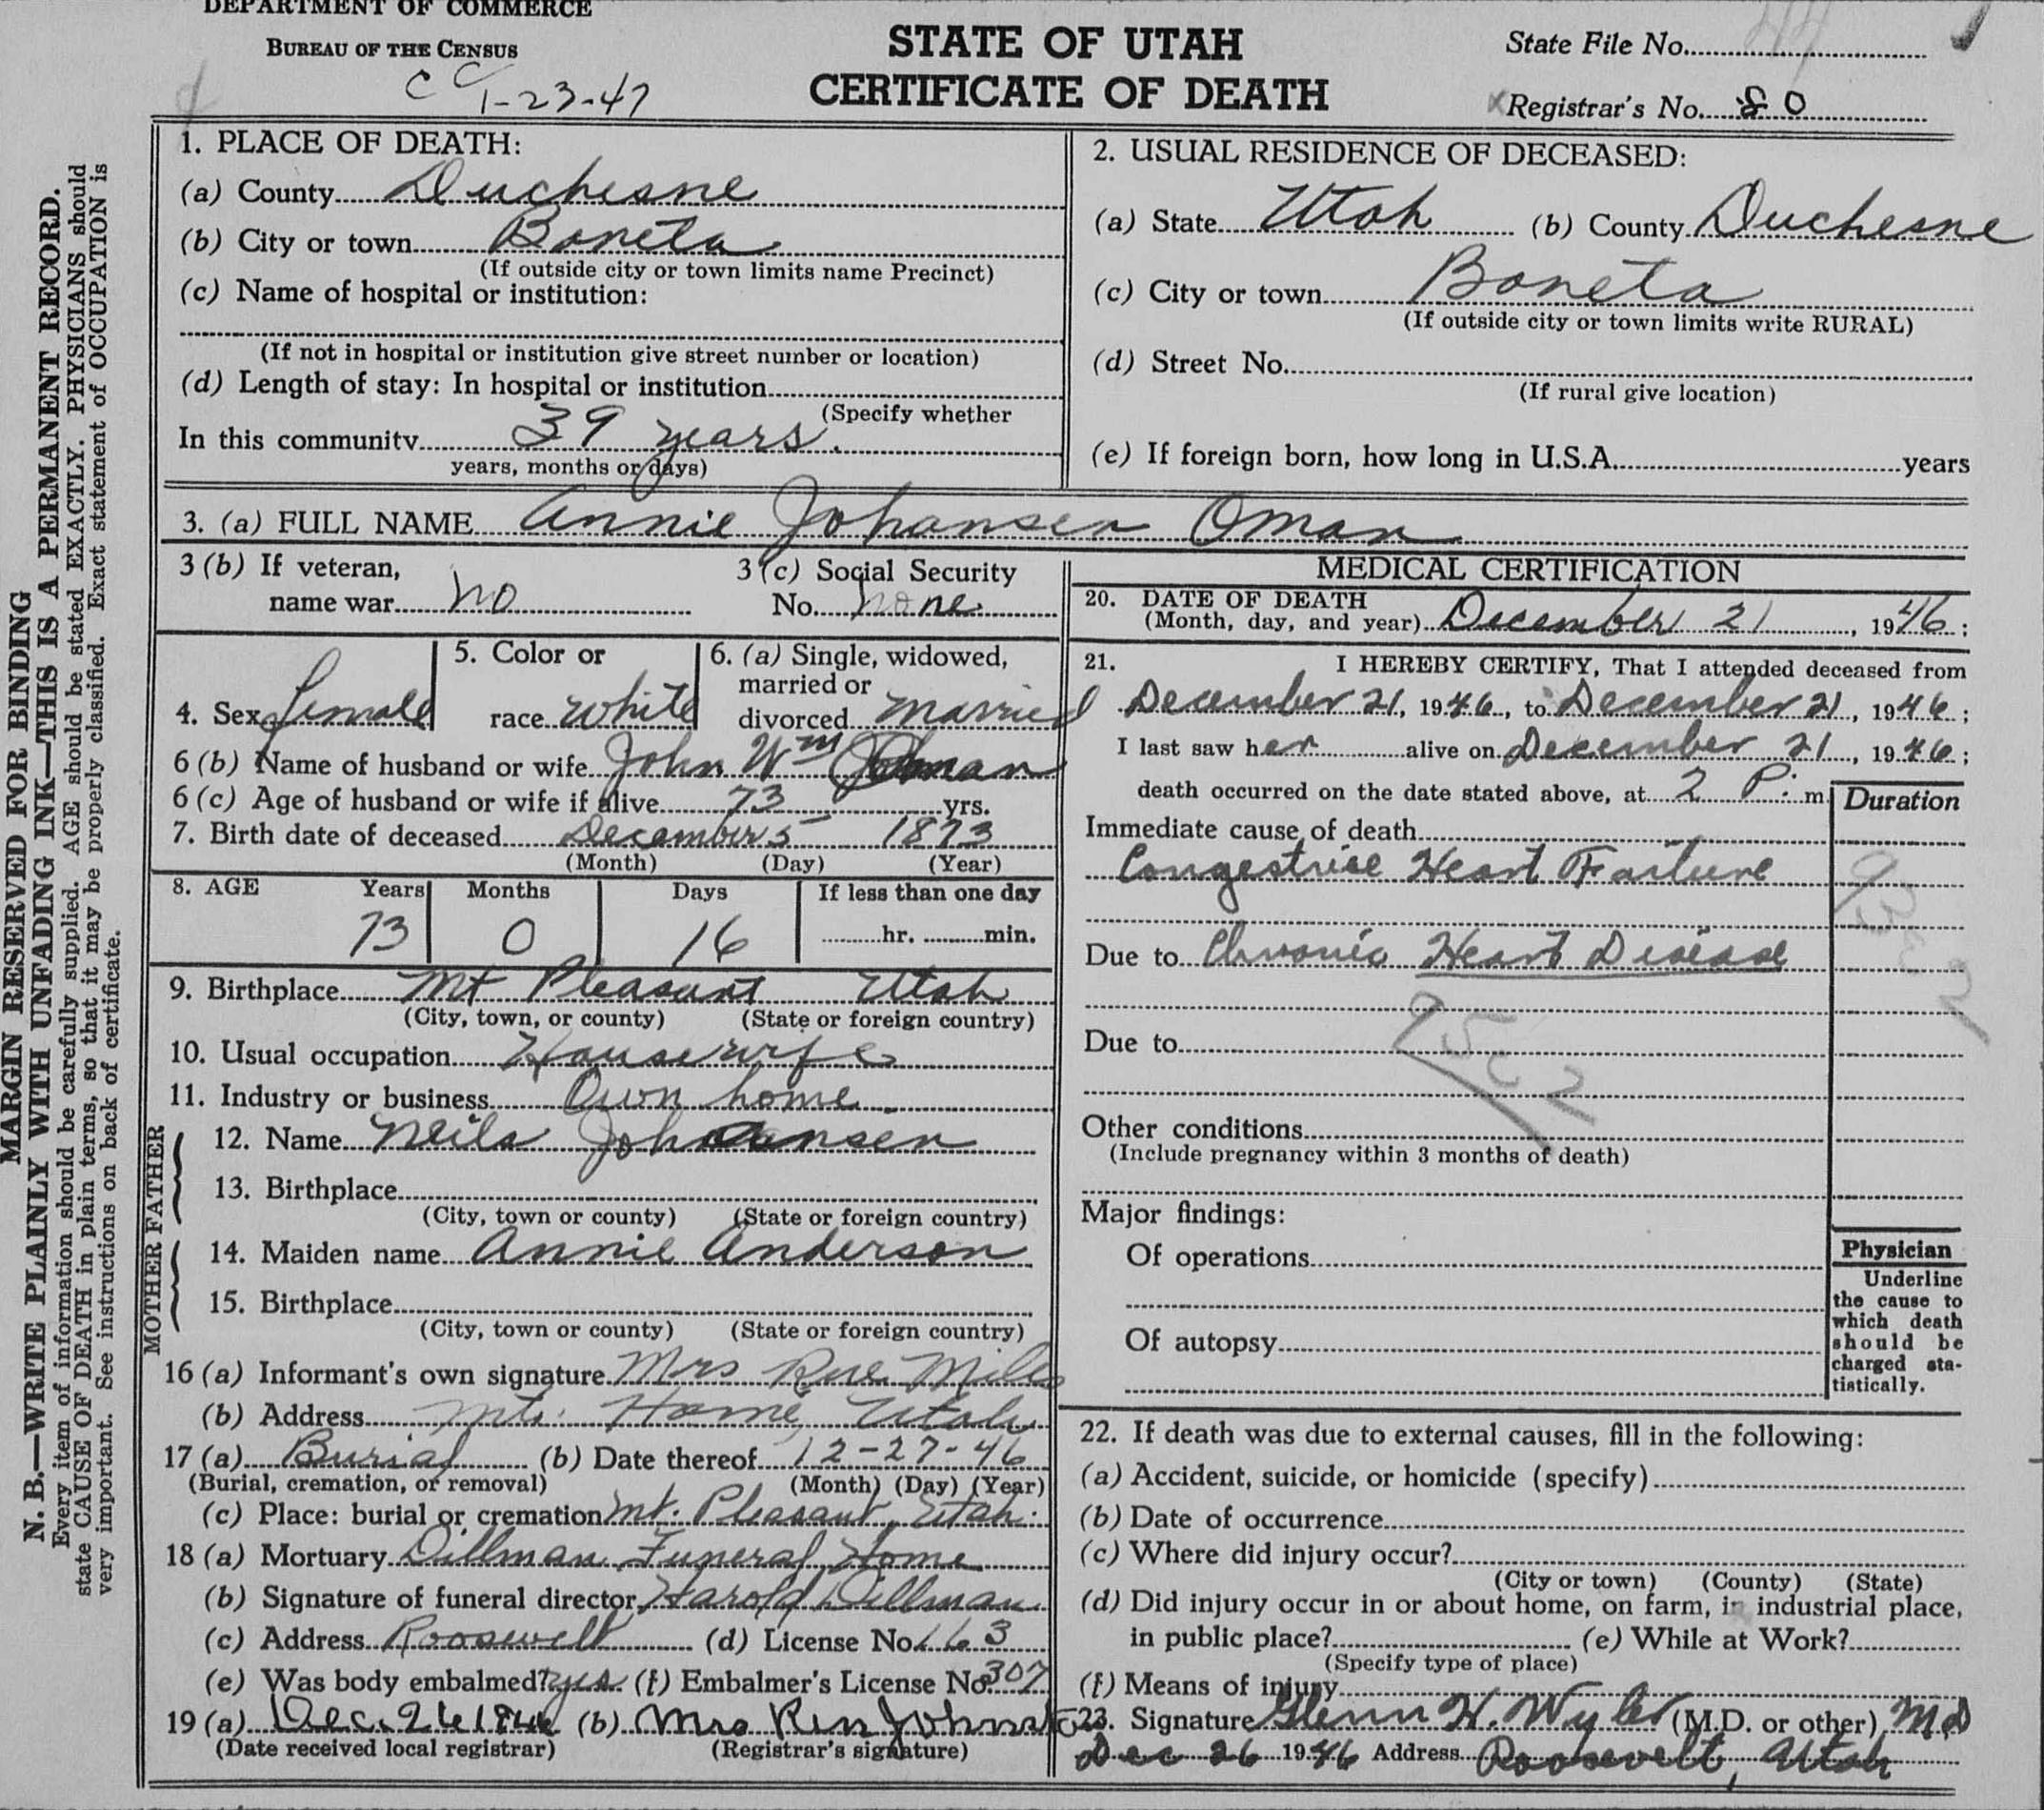 DEPARTMENT OF COMMERCE
BUREAU OF THE CENSUS
1-23-47
STATE OF UTAH
CERTIFICATE OF DEATH
State File No.
Registrar's No. 80
MARGIN RESERVED FOR BINDING
N. B.—WRITE PLAINLY WITH UNFADING INK—THIS IS A PERMANENT RECORD.
Every item of information should be carefully supplied. AGE should be stated EXACTLY. PHYSICIANS should
state CAUSE OF DEATH in plain terms, so that it may be properly classified. Exact statement of OCCUPATION is
very important. See instructions on back of certificate.
1. PLACE OF DEATH:
(a) County Duchesne
(b) City or town Boneta
(If outside city or town limits name Precinct)
(c) Name of hospital or institution:
(If not in hospital or institution give street number or location)
(d) Length of stay: In hospital or institution
(Specify whether
In this community 39 years.
years, months or days)
2. USUAL RESIDENCE OF DECEASED:
(a) State Utah (b) County Duchesne
(c) City or town Boneta
(If outside city or town limits write RURAL)
(d) Street No.
(If rural give location)
(e) If foreign born, how long in U.S.A. years
3. (a) FULL NAME Annie Johansen Oman
3 (b) If veteran,
name war no
3 (c) Social Security
No. none
4. Sex female
5. Color or
race white
6. (a) Single, widowed,
married or
divorced married
6 (b) Name of husband or wife John Wm Oman
6 (c) Age of husband or wife if alive 73 yrs.
7. Birth date of deceased December 5 1873
(Month) (Day) (Year)
8. AGE Years Months Days If less than one day
73 0 16 hr. min.
9. Birthplace Mt Pleasant Utah
(City, town, or county) (State or foreign country)
10. Usual occupation Housewife
11. Industry or business Own home
FATHER
12. Name Neils Johansen
13. Birthplace
(City, town or county) (State or foreign country)
MOTHER
14. Maiden name Annie Anderson
15. Birthplace
(City, town or county) (State or foreign country)
16 (a) Informant's own signature Mrs Rue Miles
(b) Address Mt. Home, Utah
17 (a) Burial (b) Date thereof 12-27-46
(Burial, cremation, or removal) (Month) (Day) (Year)
(c) Place: burial or cremation Mt. Pleasant, Utah.
18 (a) Mortuary Dillman Funeral Home
(b) Signature of funeral director Harold Dillman
(c) Address Roosevelt (d) License No. 163
(e) Was body embalmed? yes (f) Embalmer's License No. 307
19 (a) Dec. 26 1946 (b) Mrs
(Date received local registrar) (Registrar's signature)
MEDICAL CERTIFICATION
20. DATE OF DEATH
(Month, day, and year) December 21, 1946;
21. I HEREBY CERTIFY, That I attended deceased from
December 21, 1946, to December 21, 1946;
I last saw her alive on December 21, 1946;
death occurred on the date stated above, at 2 P. m.
Duration
Immediate cause of death
Congestive Heart Failure
Due to Chronic Heart Disease
Due to
Other conditions
(Include pregnancy within 3 months of death)
Major findings:
Of operations
Of autopsy
Physician
Underline
the cause to
which death
should be
charged sta-
tistically.
22. If death was due to external causes, fill in the following:
(a) Accident, suicide, or homicide (specify)
(b) Date of occurrence
(c) Where did injury occur?
(City or town) (County) (State)
(d) Did injury occur in or about home, on farm, in industrial place,
in public place? (e) While at Work?
(Specify type of place)
(f) Means of injury
23. Signature Glenn H. Wyler (M.D. or other) MD
Dec 26 1946 Address Roosevelt, Utah